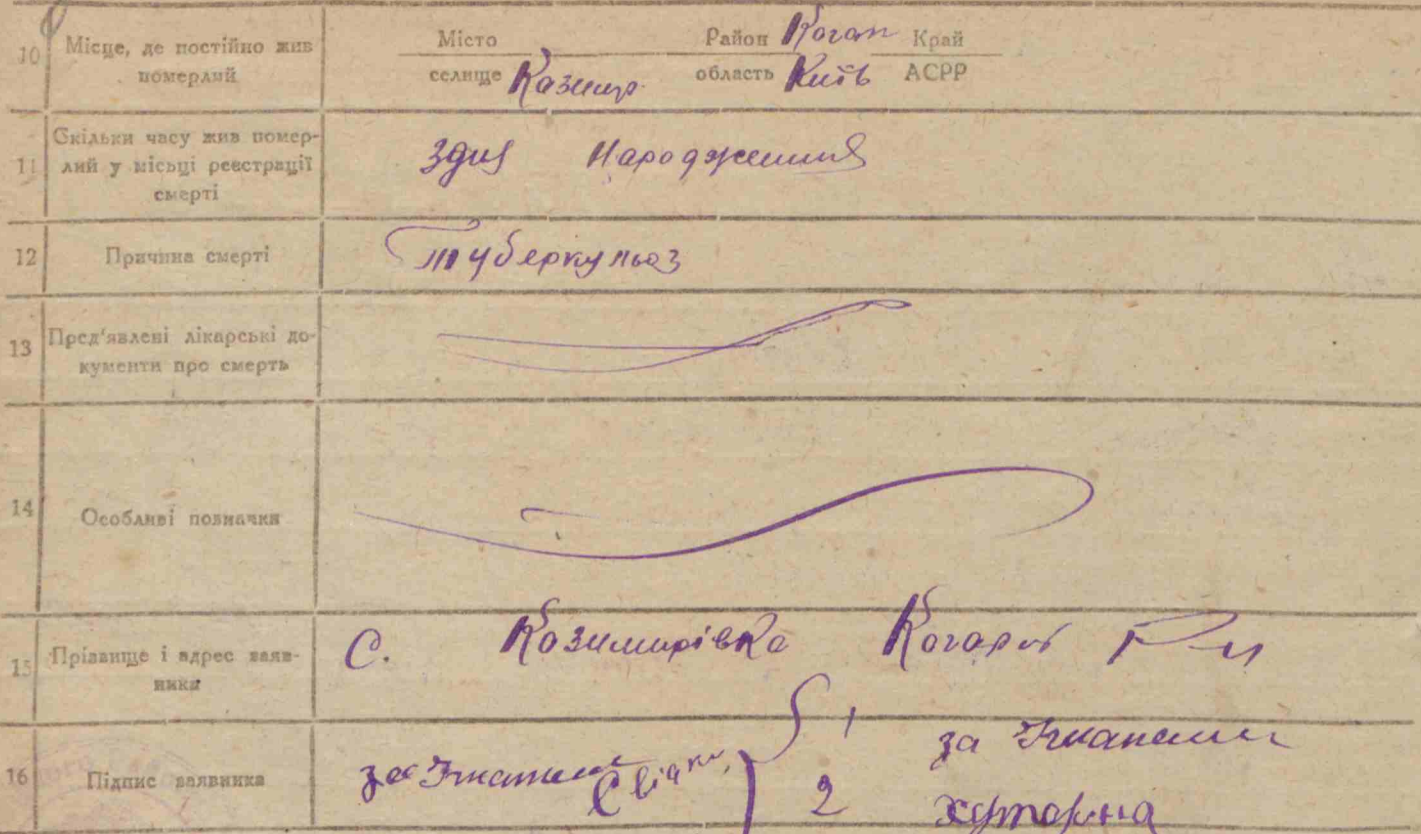 10 Місце, де постійно жив померлий
Місто Район Коган Край
селище Казимр. область Київ АСРР
11 Скільки часу жив померлий у місці реєстрації смерті
здня народження
12 Причина смерті
туберкульоз
13 Пред'явлені лікарські документи про смерть
14 Особливі позначки
15 Прізвище і адрес заявника
С. Козимирівка
16 Підпис заявника
за
Свідки 1 за
2